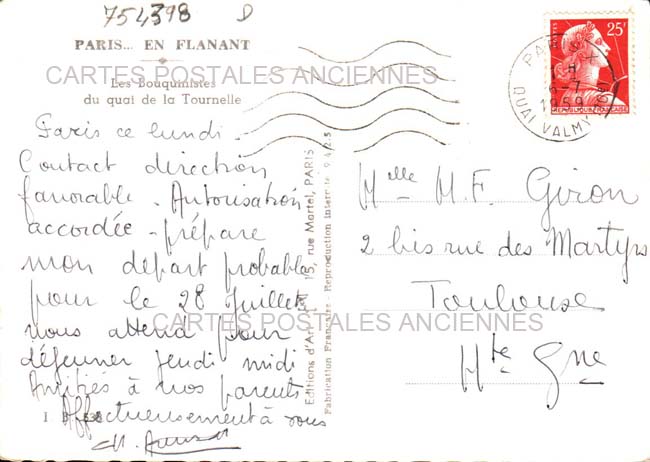 754398 D
PARIS... EN FLANANT
CARTES POSTALES ANCIENNES
Les Bouquinistes
du quai de la Tournelle
Paris ce lundi.
Contact direction
favorable. Autorisation
accordée - prépare
mon départ probable
pour le 28 Juillet
vous attend pour
déjeuner jeudi midi
Amitiés à vos parents
Affectueusement à vous
I
Editions d'Art 15, rue Martel, PARIS
Fabrication Française - Reproduction interdite 9425
25F
POSTES
REPUBLIQUE FRANÇAISE
PARIS X
H
6-7
1959
QUAI VALMY
Mlle M.F. Giron
2 bis rue des Martyrs
Toulouse
Hte Gne
CARTES POSTALES ANCIENNES